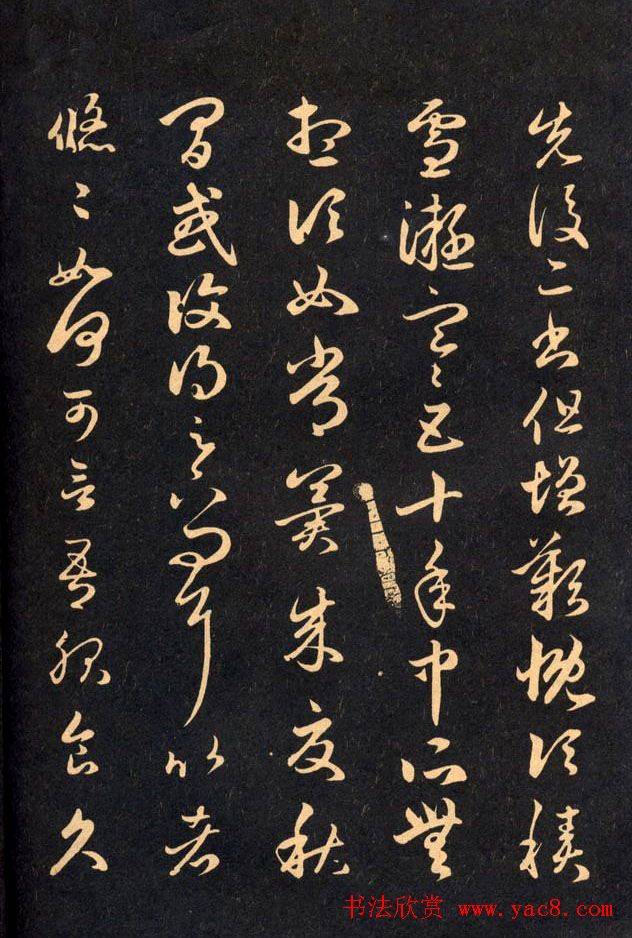 先後二書但增歎慨頃積
雪凝寒五十年中所無
想頃如常冀來夏秋
間或復得足下問耳比者
悠〻如何可言吾服食久
书法欣赏 www.yac8.com